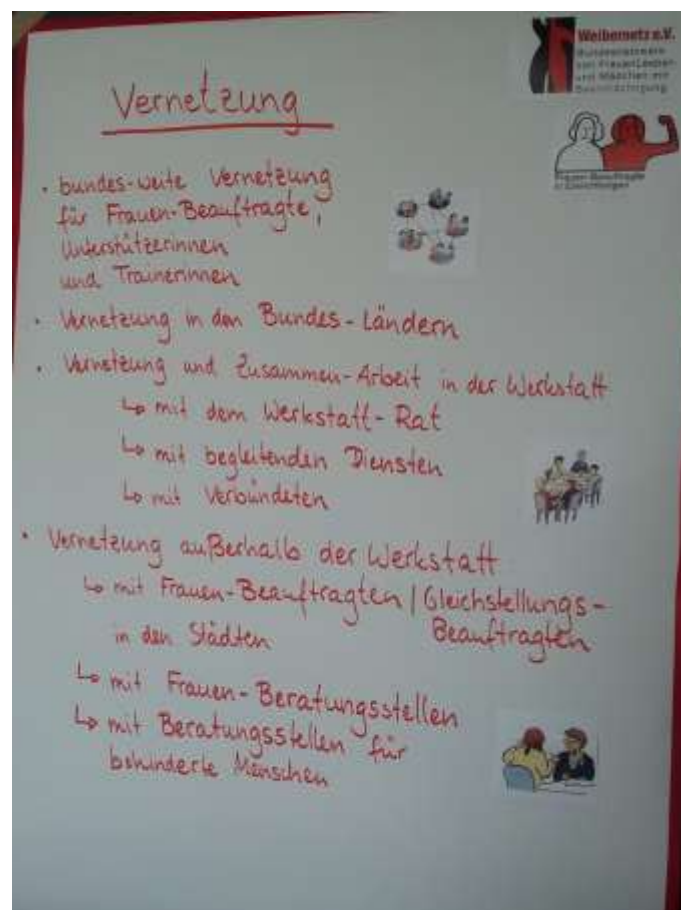 Weibernetz e.V.
Bundesnetzwerk
von FrauenLesben
und Mädchen mit
Beeinträchtigung
Frauen-Beauftragte
in Einrichtungen
Vernetzung
· bundes-weite Vernetzung
für Frauen-Beauftragte,
Unterstützerinnen
und Trainerinnen
· Vernetzung in den Bundes-Ländern
· Vernetzung und Zusammen-Arbeit in der Werkstatt
↳ mit dem Werkstatt-Rat
↳ mit begleitenden Diensten
↳ mit Verbündeten
· Vernetzung außerhalb der Werkstatt
↳ mit Frauen-Beauftragten / Gleichstellungs-
in den Städten Beauftragten
↳ mit Frauen-Beratungsstellen
↳ mit Beratungsstellen für
behinderte Menschen